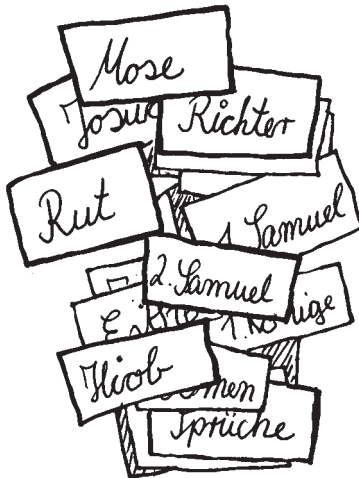 Mose
Josua
Richter
Rut
1. Samuel
2. Samuel
1. Könige
Hiob
Sprüche